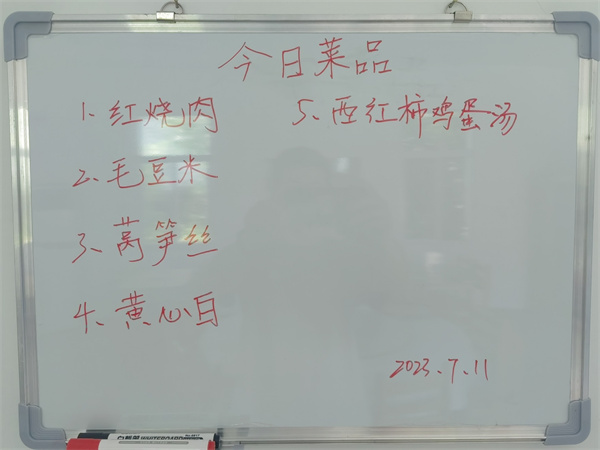 今日菜品
1、红烧肉
2、毛豆米
3、莴笋丝
4、黄心白
5、西红柿鸡蛋汤
2023.7.11
白板笔 WHITEBOARD